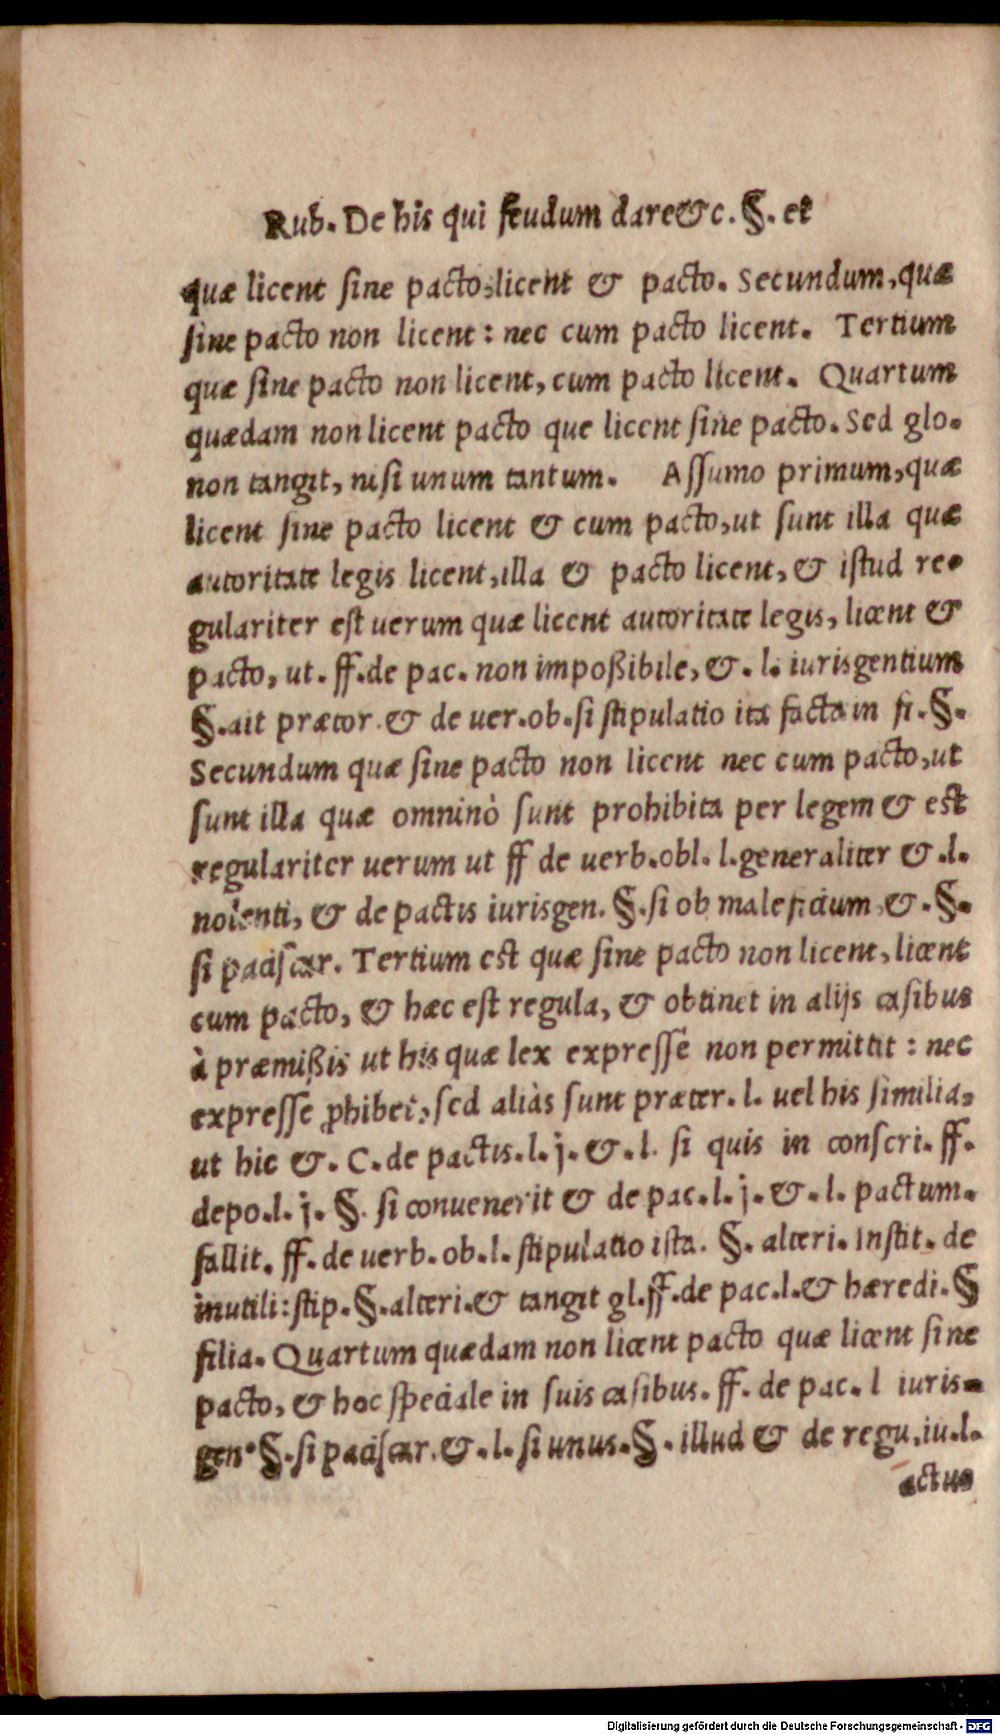 Rub. De his qui feudum dare&c. §. et
quæ licent sine pacto,licent & pacto. Secundum,quæ
sine pacto non licent: nec cum pacto licent. Tertium
quæ sine pacto non licent, cum pacto licent. Quartum
quædam non licent pacto que licent sine pacto. Sed glo.
non tangit, nisi unum tantum. Assumo primum,quæ
licent sine pacto licent & cum pacto,ut sunt illa quæ
autoritate legis licent,illa & pacto licent, & istud re-
gulariter est uerum quæ licent autoritate legis, licent &
pacto, ut. ff.de pac. non impoßibile, &. l. iurisgentium
§.ait prætor.& de uer.ob.si stipulatio ita facta in fi.§.
Secundum quæ sine pacto non licent nec cum pacto,ut
sunt illa quæ omninò sunt prohibita per legem & est
regulariter uerum ut ff de uerb.obl. l.generaliter &.l.
nolenti, & de pactis iurisgen. §.si ob maleficium &.§.
si paciscar. Tertium est quæ sine pacto non licent, licent
cum pacto, & hæc est regula, & obtinet in alijs casibus
à præmißis ut his quæ lex expresse non permittit : nec
expresse ꝓhibet,sed aliàs sunt præter. l. uel his similia,
ut hic &. C.de pactis.l.j.&.l. si quis in conscri. ff.
depo.l.j. §. si conuenerit & de pac.l.j.&.l. pactum.
fallit. ff. de uerb. ob.l. stipulatio ista. §. alteri. Instit. de
inutili: stip. §.alteri.& tangit gl.ff.de pac.l.& hæredi.§
filia. Quartum quædam non licent pacto quæ licent sine
pacto, & hoc speciale in suis casibus. ff. de pac. l iuris-
gen. §.si paciscar.&.l. si unus.§. illud & de regu.iu.l.
actus
Digitalisierung gefördert durch die Deutsche Forschungsgemeinschaft - DFG